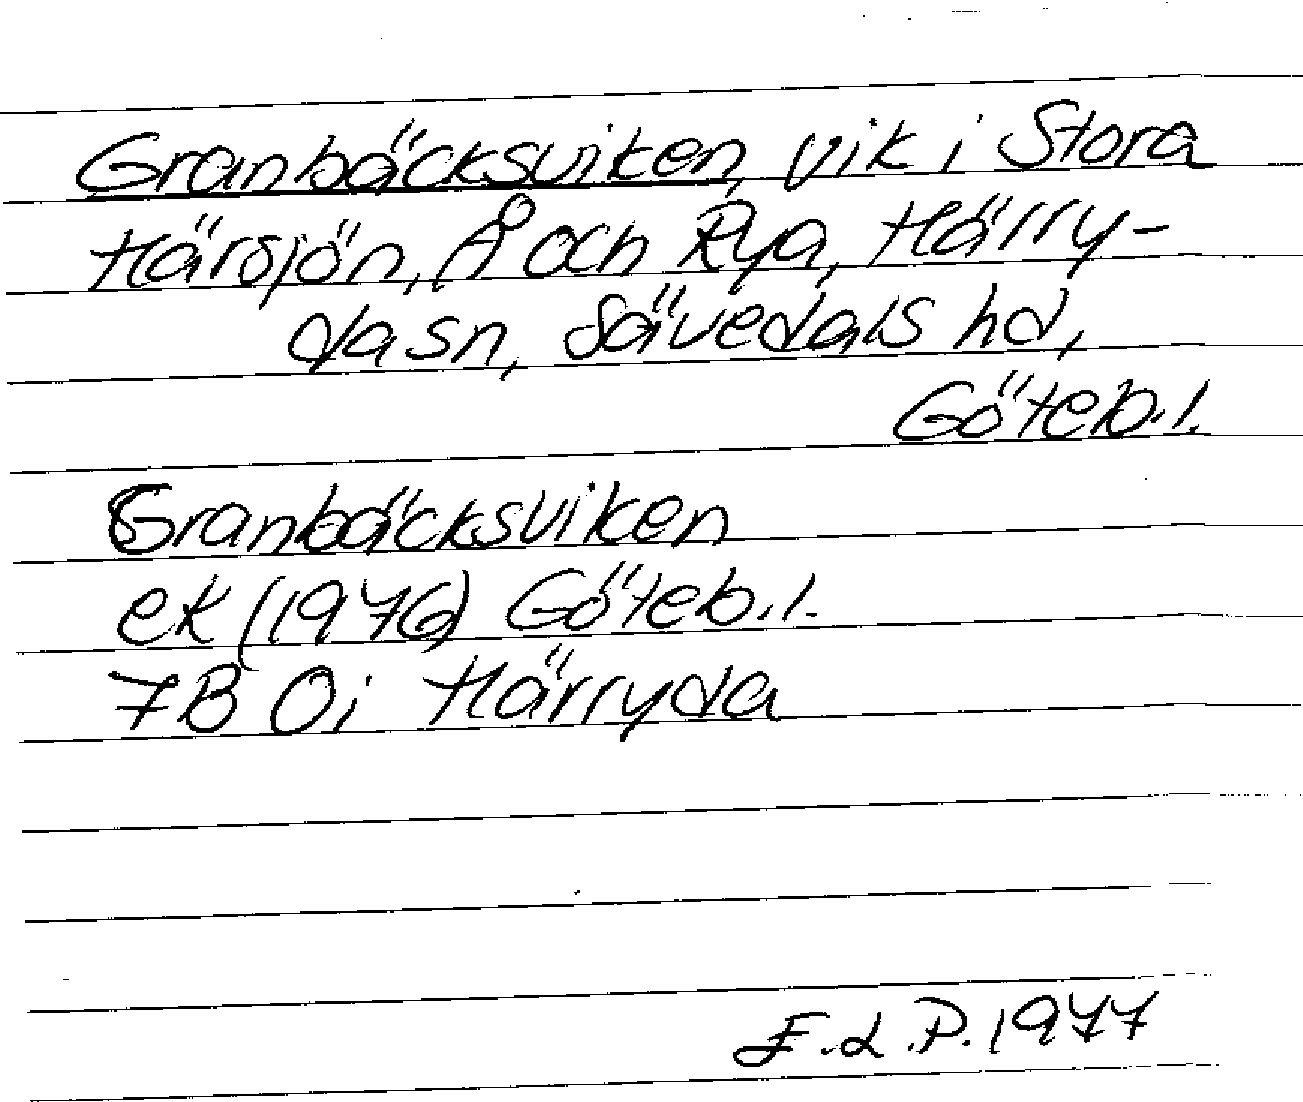 Granbäcksviken, vik i Stora
Härsjön, Å och Rya, Härry-
da sn, Sävedals hd,
Göteb. l.
Granbäcksviken
ek (1976) Göteb. l.
7B 0i Härryda
E.L.P. 1977